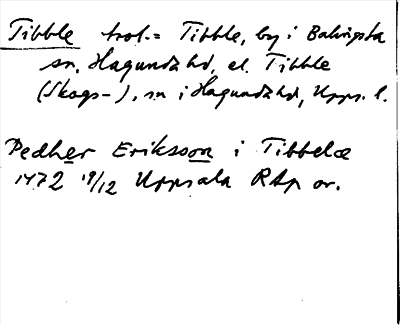 Tibble trol.= Tibble, by i Balingsta
sn, Hagunda hd, el. Tibble
(Skogs-), sn i Hagunda hd, Upps. l.
Pedher Eriksson i Tibbelæ
1472 19/12 Uppsala RAp or.